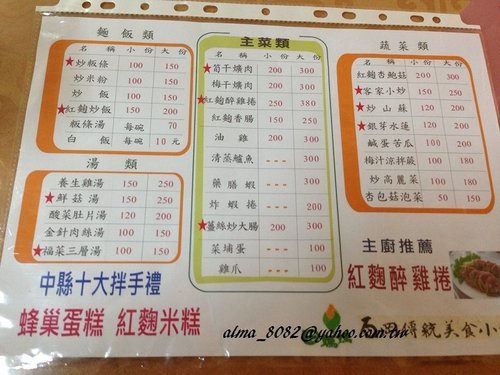 麵飯類
名稱 小份 大份
★炒粄條 100 150
炒米粉 100 150
炒飯 100 150
★紅麴炒飯 150 200
粄條湯 每碗 70
白飯 每碗 10元
湯類
名稱 小份 大份
養生雞湯 150 250
★鮮菇湯 150 250
酸菜肚片湯 150 200
金針肉絲湯 100 150
★福菜三層湯 100 150
主菜類
名稱 小份 大份
★筍干爌肉 200 300
梅干爌肉 200 300
★紅麴醉雞捲 250 380
紅麴香腸 150 250
油雞 200 300
清蒸鱸魚 --- 300
藥膳蝦 --- 300
炸蝦捲 --- 200
★薑絲炒大腸 200 300
菜埔蛋 --- 100
雞爪 --- 100
蔬菜類
名稱 小份 大份
紅麴杏鮑菇 200 250
★客家小炒 150 250
★炒山蘇 120 200
★銀芽水蓮 120 200
鹹蛋苦瓜 100 200
梅汁涼拌蕨 120 180
炒高麗菜 100 180
杏包菇泡菜 50 150
中縣十大拌手禮
蜂巢蛋糕 紅麴米糕
主廚推薦
紅麴醉雞捲
傳統美食小
alma_8082@yahoo.com.tw